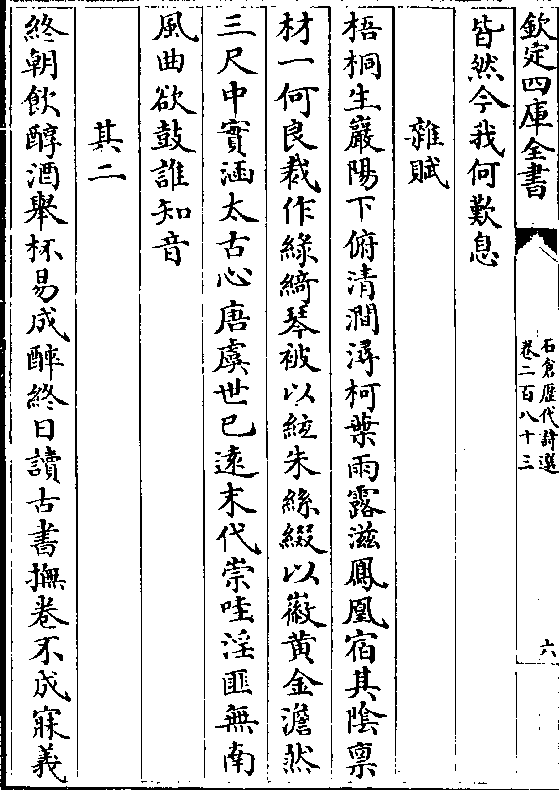 欽定四庫全書
石倉歷代詩選
卷二百八十三
六
皆然今我何歎息
雜賦
梧桐生巖陽下俯清澗潯柯葉雨露滋鳳凰宿其陰禀
材一何良裁作綠綺琴被以絃朱絲綴以徽黃金澹然
三尺中實涵太古心唐虞世已逺末代崇哇淫匪無南
風曲欲鼓誰知音
其二
終朝飲醇酒舉杯易成醉終日讀古書撫卷不成寐義